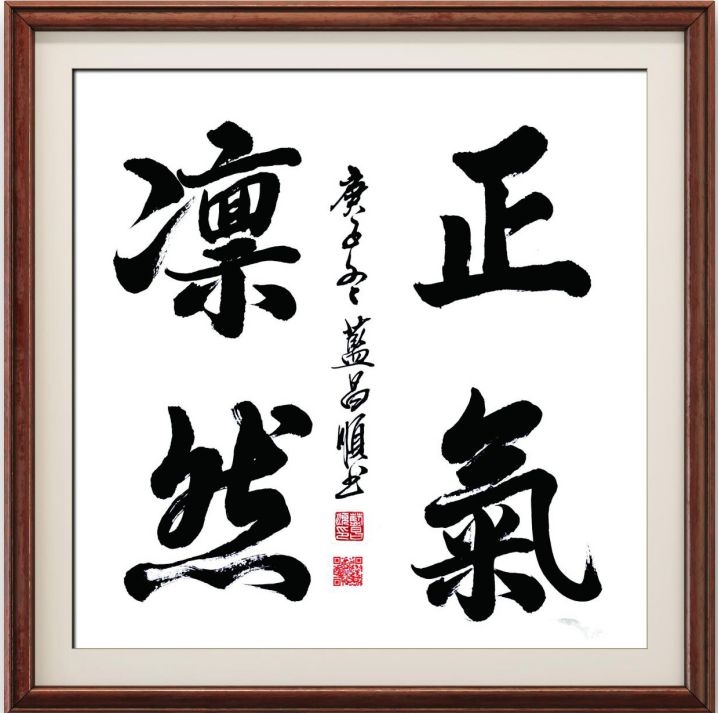 正氣
凛然
庚子冬藍昌順书